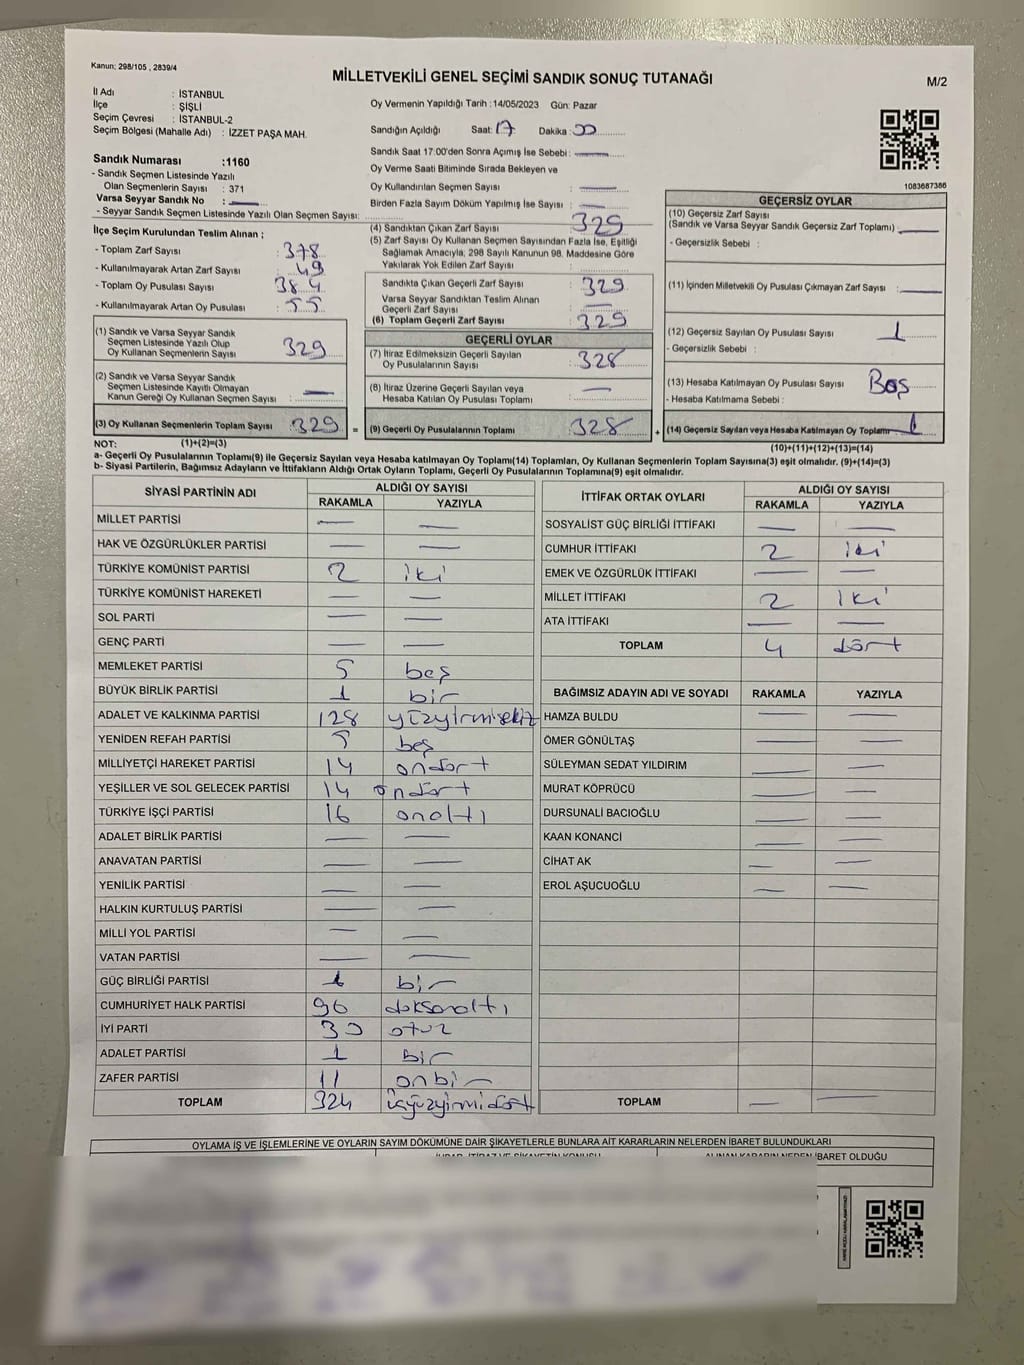 Kanun: 298/105 , 2839/4
MİLLETVEKİLİ GENEL SEÇİMİ SANDIK SONUÇ TUTANAĞI
M/2
İl Adı : İSTANBUL
İlçe : ŞİŞLİ
Seçim Çevresi : İSTANBUL-2
Seçim Bölgesi (Mahalle Adı) : İZZET PAŞA MAH.
Oy Vermenin Yapıldığı Tarih : 14/05/2023 Gün: Pazar
Sandığın Açıldığı Saat: 17 Dakika : 00
Sandık Saat 17:00'den Sonra Açımış İse Sebebi : —
Oy Verme Saati Bitiminde Sırada Bekleyen ve
Oy Kullandırılan Seçmen Sayısı : —
Birden Fazla Sayım Döküm Yapılmış İse Sayısı : —
1083687386
Sandık Numarası :1160
- Sandık Seçmen Listesinde Yazılı
Olan Seçmenlerin Sayısı : 371
Varsa Seyyar Sandık No : —
- Seyyar Sandık Seçmen Listesinde Yazılı Olan Seçmen Sayısı:
İlçe Seçim Kurulundan Teslim Alınan ;
- Toplam Zarf Sayısı : 378
- Kullanılmayarak Artan Zarf Sayısı : 49
- Toplam Oy Pusulası Sayısı : 384
- Kullanılmayarak Artan Oy Pusulası : 55
(1) Sandık ve Varsa Seyyar Sandık
Seçmen Listesinde Yazılı Olup
Oy Kullanan Seçmenlerin Sayısı : 329
(2) Sandık ve Varsa Seyyar Sandık
Seçmen Listesinde Kayıtlı Olmayan
Kanun Gereği Oy Kullanan Seçmen Sayısı : —
(3) Oy Kullanan Seçmenlerin Toplam Sayısı : 329 =
(4) Sandıktan Çıkan Zarf Sayısı : 329
(5) Zarf Sayısı Oy Kullanan Seçmen Sayısından Fazla İse, Eşitliği
Sağlamak Amacıyla, 298 Sayılı Kanunun 98. Maddesine Göre
Yakılarak Yok Edilen Zarf Sayısı :
Sandıkta Çıkan Geçerli Zarf Sayısı : 329
Varsa Seyyar Sandıktan Teslim Alınan
Geçerli Zarf Sayısı : —
(6) Toplam Geçerli Zarf Sayısı : 329
GEÇERLİ OYLAR
(7) İtiraz Edilmeksizin Geçerli Sayılan
Oy Pusulalarının Sayısı : 328
(8) İtiraz Üzerine Geçerli Sayılan veya
Hesaba Katılan Oy Pusulası Toplamı : —
(9) Geçerli Oy Pusulalarının Toplamı : 328 +
GEÇERSİZ OYLAR
(10) Geçersiz Zarf Sayısı
(Sandık ve Varsa Seyyar Sandık Geçersiz Zarf Toplamı) : —
- Geçersizlik Sebebi :
(11) İçinden Milletvekili Oy Pusulası Çıkmayan Zarf Sayısı : —
(12) Geçersiz Sayılan Oy Pusulası Sayısı : 1
- Geçersizlik Sebebi :
(13) Hesaba Katılmayan Oy Pusulası Sayısı : Boş
- Hesaba Katılmama Sebebi :
(14) Geçersiz Sayılan veya Hesaba Katılmayan Oy Toplamı : 1
NOT: (1)+(2)=(3)
(10)+(11)+(12)+(13)=(14)
a- Geçerli Oy Pusulalarının Toplamı(9) ile Geçersiz Sayılan veya Hesaba katılmayan Oy Toplamı(14) Toplamları, Oy Kullanan Seçmenlerin Toplam Sayısına(3) eşit olmalıdır. (9)+(14)=(3)
b- Siyasi Partilerin, Bağımsız Adayların ve İttifakların Aldığı Ortak Oyların Toplamı, Geçerli Oy Pusulalarının Toplamına(9) eşit olmalıdır.
SİYASİ PARTİNİN ADI ALDIĞI OY SAYISI
RAKAMLA YAZIYLA
MİLLET PARTİSİ — —
HAK VE ÖZGÜRLÜKLER PARTİSİ — —
TÜRKİYE KOMÜNİST PARTİSİ 2 iki
TÜRKİYE KOMÜNİST HAREKETİ — —
SOL PARTİ — —
GENÇ PARTİ — —
MEMLEKET PARTİSİ 5 beş
BÜYÜK BİRLİK PARTİSİ 1 bir
ADALET VE KALKINMA PARTİSİ 128 yüzyirmisekiz
YENİDEN REFAH PARTİSİ 5 beş
MİLLİYETÇİ HAREKET PARTİSİ 14 ondört
YEŞİLLER VE SOL GELECEK PARTİSİ 14 ondört
TÜRKİYE İŞÇİ PARTİSİ 16 onaltı
ADALET BİRLİK PARTİSİ — —
ANAVATAN PARTİSİ — —
YENİLİK PARTİSİ — —
HALKIN KURTULUŞ PARTİSİ — —
MİLLİ YOL PARTİSİ — —
VATAN PARTİSİ — —
GÜÇ BİRLİĞİ PARTİSİ 1 bir
CUMHURİYET HALK PARTİSİ 96 doksanaltı
İYİ PARTİ 30 otuz
ADALET PARTİSİ 1 bir
ZAFER PARTİSİ 11 onbir
TOPLAM 324 üçyüzyirmidört
İTTİFAK ORTAK OYLARI ALDIĞI OY SAYISI
RAKAMLA YAZIYLA
SOSYALİST GÜÇ BİRLİĞİ İTTİFAKI — —
CUMHUR İTTİFAKI 2 iki
EMEK VE ÖZGÜRLÜK İTTİFAKI — —
MİLLET İTTİFAKI 2 iki
ATA İTTİFAKI — —
TOPLAM 4 dört
BAĞIMSIZ ADAYIN ADI VE SOYADI RAKAMLA YAZIYLA
HAMZA BULDU — —
ÖMER GÖNÜLTAŞ — —
SÜLEYMAN SEDAT YILDIRIM — —
MURAT KÖPRÜCÜ — —
DURSUNALİ BACIOĞLU — —
KAAN KONANCİ — —
CİHAT AK — —
EROL AŞUCUOĞLU — —
TOPLAM — —
OYLAMA İŞ VE İŞLEMLERİNE VE OYLARIN SAYIM DÖKÜMÜNE DAİR ŞİKAYETLERLE BUNLARA AİT KARARLARIN NELERDEN İBARET BULUNDUKLARI
ALINAN KARARIN NEDEN İBARET OLDUĞU